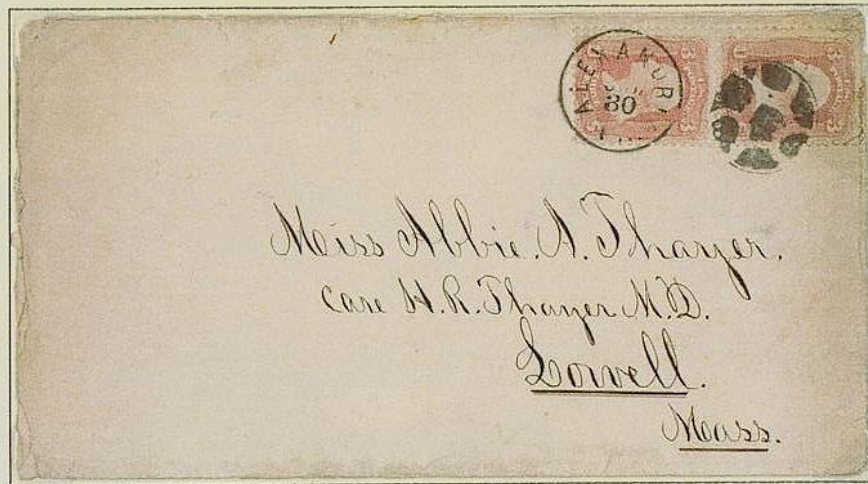 ALEXANDRIA
30
3 3
3 3
Miss Abbie. A. Thayer.
Care H. R. Thayer M.D.
Lowell.
Mass.